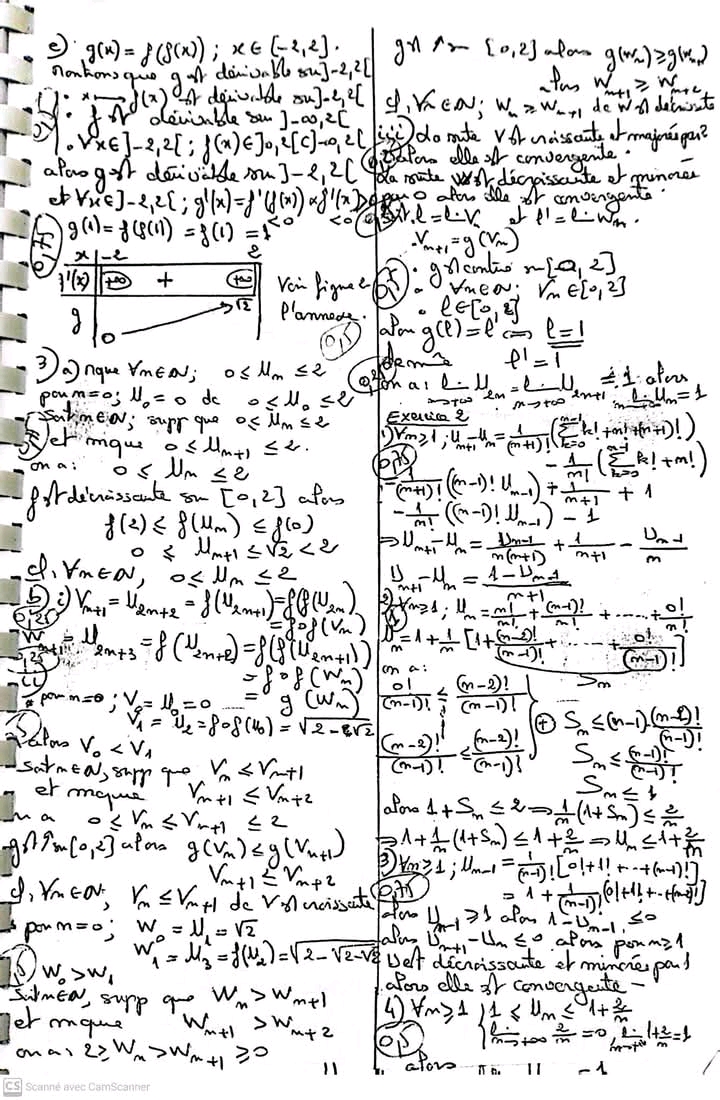 c) g(x) = f(f(x)) ; x ∈ [-2, 2].
Montrons que g est dérivable sur ]-2, 2[
• x ⟼ f(x) est dérivable sur ]-2, 2[
• f est dérivable sur ]-∞, 2[
• ∀x ∈ ]-2, 2[ ; f(x) ∈ ]0, 2[ ⊂ ]-∞, 2[
alors g est dérivable sur ]-2, 2[
et ∀x ∈ ]-2, 2[ ; g'(x) = f'(f(x)) × f'(x) > 0
<0 <0
g(1) = f(f(1)) = f(1) = 1
x -2 2
f'(x) +∞ + +∞
g 0 √2
Voir figure 2
l'annexe.
0,5
3) a) mque ∀n ∈ ℕ ; 0 ≤ U_n ≤ 2
pour n = 0 ; U_0 = 0 dc 0 ≤ U_0 ≤ 2
Soit n ∈ ℕ ; supp que 0 ≤ U_n ≤ 2
et mque 0 ≤ U_{n+1} ≤ 2.
on a : 0 ≤ U_n ≤ 2
f est décroissante sur [0, 2] alors
f(2) ≤ f(U_n) ≤ f(0)
0 ≤ U_{n+1} ≤ √2 < 2
cl, ∀n ∈ ℕ, 0 ≤ U_n ≤ 2
b) i) V_{n+1} = U_{2n+2} = f(U_{2n+1}) = f(f(U_{2n}))
0,25
= f∘f(V_n)
W_{n+1} = U_{2n+3} = f(U_{2n+2}) = f(f(U_{2n+1}))
0,25
= f∘f(W_n)
ii)
= g(W_n)
* pour n = 0 ; V_0 = U_0 = 0
V_1 = U_2 = f∘f(U_0) = √(2 - √2)
alors V_0 < V_1
Soit n ∈ ℕ, supp que V_n ≤ V_{n+1}
et mque V_{n+1} ≤ V_{n+2}
on a 0 ≤ V_n ≤ V_{n+1} ≤ 2
g est ↗ sur [0, 2] alors g(V_n) ≤ g(V_{n+1})
V_{n+1} ≤ V_{n+2}
cl, ∀n ∈ ℕ, V_n ≤ V_{n+1} dc V est croissante
* pour n = 0 ; W_0 = U_1 = √2
W_1 = U_3 = f(U_2) = √(2 - √(2 - √2))
W_0 > W_1
Soit n ∈ ℕ, supp que W_n > W_{n+1}
et mque W_{n+1} > W_{n+2}
on a : 2 ≥ W_n > W_{n+1} ≥ 0
g est ↗ sur [0, 2] alors g(W_n) ≥ g(W_{n+1})
alors W_{n+1} ≥ W_{n+2}
cl, ∀n ∈ ℕ ; W_n ≥ W_{n+1} dc W est décroissante
iii) La suite V est croissante et majorée par 2
alors elle est convergente.
La suite W est décroissante et minorée
par 0 alors elle est convergente.
Soit l = lim V_n et l' = lim W_n.
• V_{n+1} = g(V_n)
• g est continue sur [0, 2]
• ∀n ∈ ℕ ; V_n ∈ [0, 2]
• l ∈ [0, 2]
alors g(l) = l ⟺ l = 1
de même l' = 1
on a : lim_{n→+∞} U_{2n} = lim_{n→+∞} U_{2n+1} = 1 alors
lim_{n→+∞} U_n = 1
Exercice 2
1) ∀n ≥ 1 ; U_{n+1} - U_n = 1/(n+1)! (∑_{k=0}^{n-1} k! + n! + (n+1)!)
0,75
- 1/n! (∑_{k=0}^{n-1} k! + n!)
= 1/(n+1)! ((n-1)! U_{n-1}) + 1/(n+1) + 1
- 1/n! ((n-1)! U_{n-1}) - 1
⇒ U_{n+1} - U_n = U_{n-1}/n(n+1) + 1/(n+1) - U_{n-1}/n
U_{n+1} - U_n = (1 - U_{n-1})/(n+1)
2) ∀n ≥ 1 ; U_n = n!/n! + (n-1)!/n! + ..... + 0!/n!
U_n = 1 + 1/n [1 + (n-2)!/(n-1)! + ..... + 0!/(n-1)!]
S_n
on a :
0!/(n-1)! ≤ (n-2)!/(n-1)!
(n-2)!/(n-1)! ≤ (n-2)!/(n-1)!
⊕ S_n ≤ (n-1) (n-2)!/(n-1)!
S_n ≤ (n-1)!/(n-1)!
S_n ≤ 1
alors 1 + S_n ≤ 2 ⇒ 1/n (1 + S_n) ≤ 2/n
⇒ 1 + 1/n (1 + S_n) ≤ 1 + 2/n ⇒ U_n ≤ 1 + 2/n
3) ∀n ≥ 1 ; U_{n-1} = 1/(n-1)! [0! + 1! + ... + (n-1)!]
0,75
= 1 + 1/(n-1)! (0! + 1! + ... + (n-2)!)
alors U_{n-1} ≥ 1 alors 1 - U_{n-1} ≤ 0
alors U_{n+1} - U_n ≤ 0 alors pour n ≥ 1
U est décroissante et minorée par 1
alors elle est convergente -
4) ∀n ≥ 1 { 1 ≤ U_n ≤ 1 + 2/n
0,5
lim_{n→+∞} 2/n = 0, lim_{n→+∞} 1 + 2/n = 1
alors
CS Scanné avec CamScanner